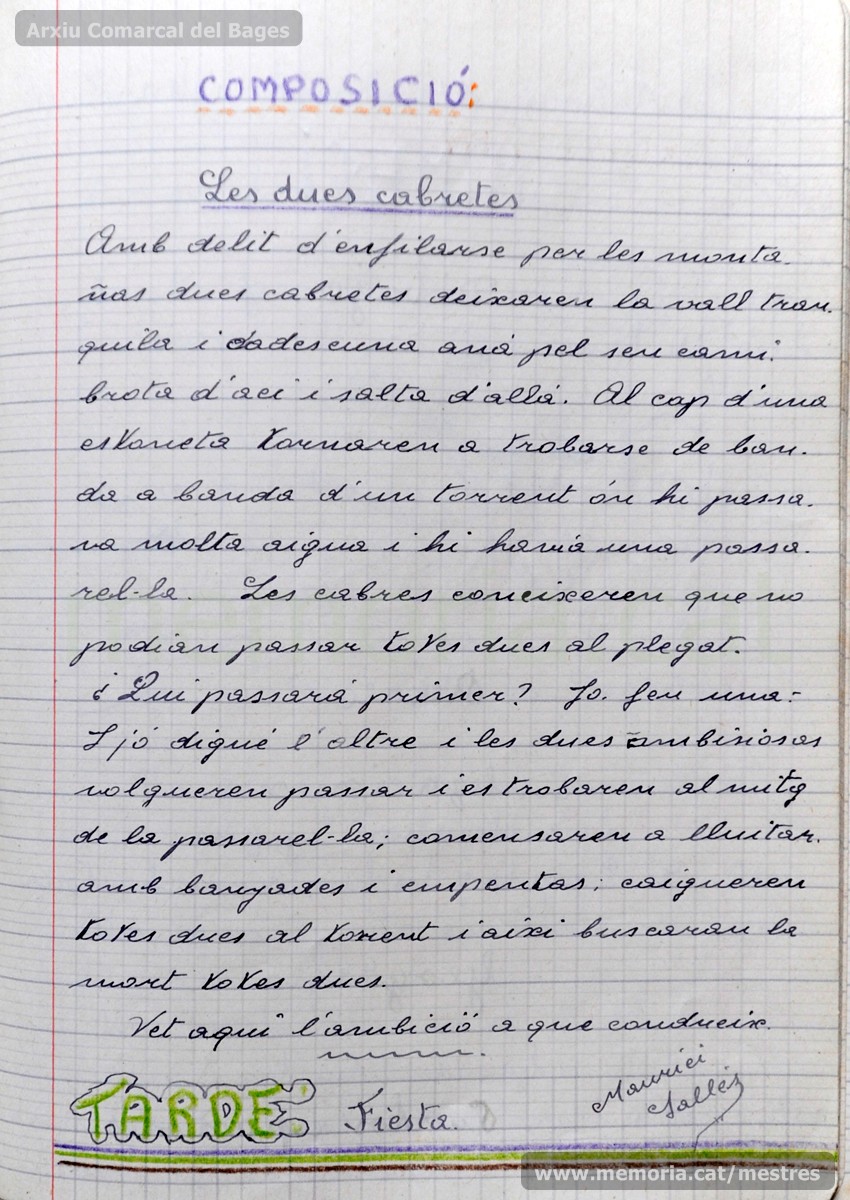 Arxiu Comarcal del Bages
COMPOSICIÓ:
Les dues cabretes
Amb delit d'enfilarse per les monta-
ñas dues cabretes deixaren la vall tran-
quila i cadescuna aná pel seu camí.
brota d'ací i salta d'allá. Al cap d'una
estoneta tornaren a trobarse de ban-
da a banda d'un torrent ón hi passa-
va molta aigua i hi havía una passa-
rel-la. Les cabres coneixeren que no
podían passar totes dues al plegat.
¿Qui passará primer? Jo. feu una:
I jó digué l'altre i les dues ambisiosas
volgueren passar i es trobaren al mitg
de la passarel-la; comensaren a lluitar.
amb banyades i empentas; caigueren
totes dues al torrent i aíxi buscaran la
mort totes dues.
Vet aquí l'ambició a que condueix.
TARDE: Fiesta.
Maurici
Sallés
www.memoria.cat/mestres